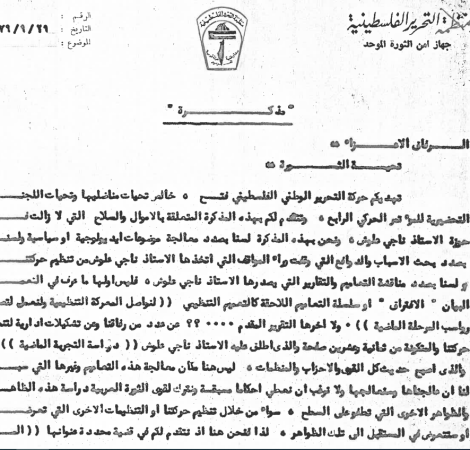 منظمة التحرير الفلسطينية
جهاز امن الثورة الموحد
الرقم :
التاريخ : ٧٩/١/٢٩
الموضوع :
" مذكـــــــرة "
الــرفاق الاعــزاء
تحيــة الثــورة
تهديكم حركة التحرير الوطني الفلسطيني فتــح ، خالص تحيات مناضليها وتحيات اللجنــ
التحضيرية للمؤتمر الحركي الرابع ، وتتقدم لكم بهذه المذكرة المتعلقة بالاموال والسلاح التي لا زالت فــ
حوزة الاستاذ ناجي علوش ، ونحن بهذه المذكرة لسنا بصدد معالجة موضوعات ايديولوجية او سياسية ولسنــ
بصدد بحث الاسباب والدوافع التي وقفت وراء المواقف التي اتخذها الاستاذ ناجي علوش من تنظيم حركتنــ
و لسنا بصدد مناقشة التعاميم والتقارير التي يصدرها الاستاذ ناجي علوش ، فليس اولها ما عرف في
البيان " الافتراق " او سلسلة التعاميم اللاحقة كالتعميم التنظيمي (( لنواصل المعركة التنظيمية ولنعمل
رواسب المرحلة الماضية )) ، ولا اخرها التقرير المقدم ٠٠٠٠ ؟؟ من عدد من رفاقنا وعن تشكيلات ادارية
حركتنا والمتكونة من ثمانية وعشرين صفحة والذي اطلق عليه الاستاذ ناجي علوش (( دراسة التجربة الماضية ))
والذي اصبح حديث كل القوى والاحزاب والمنظمات ، ليس هنا مكان معالجة هذه التعاميم وغيرها التي سبــ
لنا ان عالجناها وسنعالجها ولا نرغب ان نعطي احكاما مسبقة ونترك لقوى الثورة العربية دراسة هذه الظاهــ
والظواهر الاخرى التي تطفو على السطح ، سواء من خلال تنظيم حركتنا او التنظيمات الاخرى التي تعرضــ
او ستتعرض في المستقبل الى تلك الظواهر ، لذا فنحن هنا اذ نتقدم لكم في قضية محددة عنوانها (( الــ